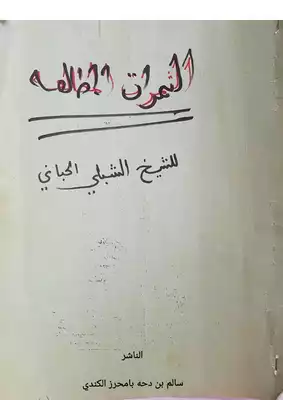 الثمرات المطالعه
للشيخ الشبلي الجباني
الناشر
سالم بن دحه بامحرز الكندي